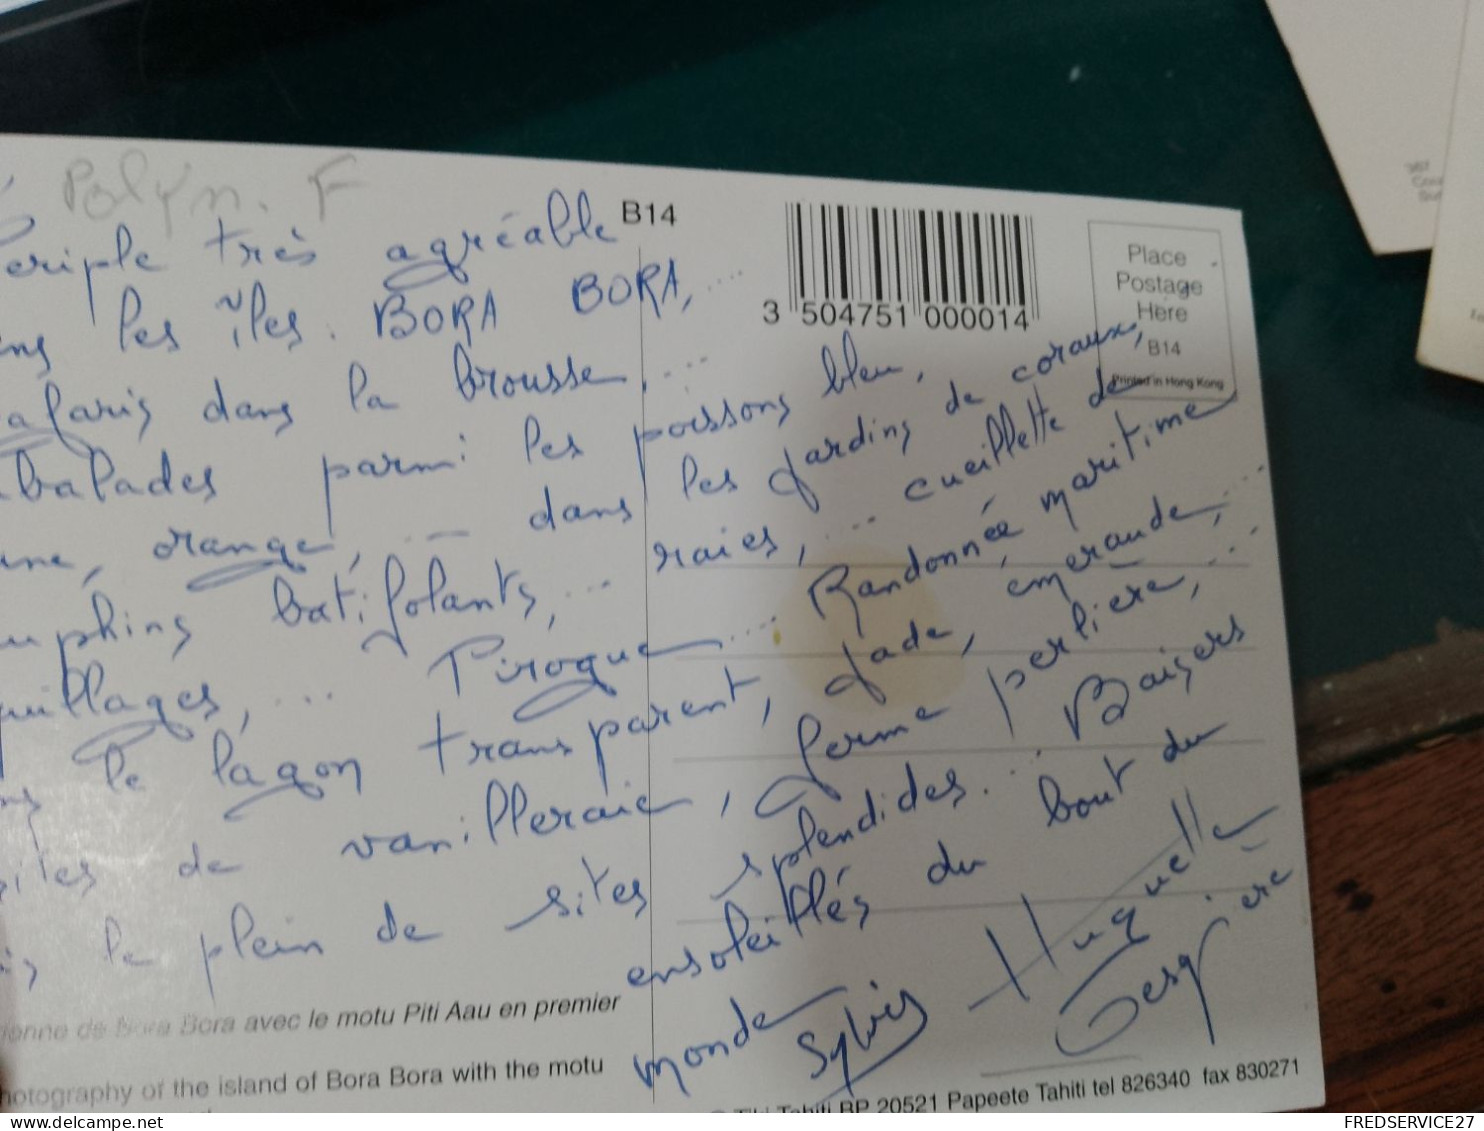 Polyn. F
B14
3 504751 000014
Place
Postage
Here
B14
Printed in Hong Kong
eriple très agréable
les îles. BORA BORA, ...
afaris dans la brousse, ...
balades parmi les poissons bleu,
orange, ... dans les jardins de coraux,
batifolants, ... raies, ... cueillette de
quillages, ... Pirogue ... Randonnée maritime
le lagon transparent, jade, emeraude, ...
de vanilleraie, ferme perlière, ...
le plein de sites splendides. ... Baisers
ensoleillés du bout du
monde
Sylvies Huguette
ienne de Bora Bora avec le motu Piti Aau en premier
hotography of the island of Bora Bora with the motu
Tahiti BP 20521 Papeete Tahiti tel 826340 fax 830271
FREDSERVICE27